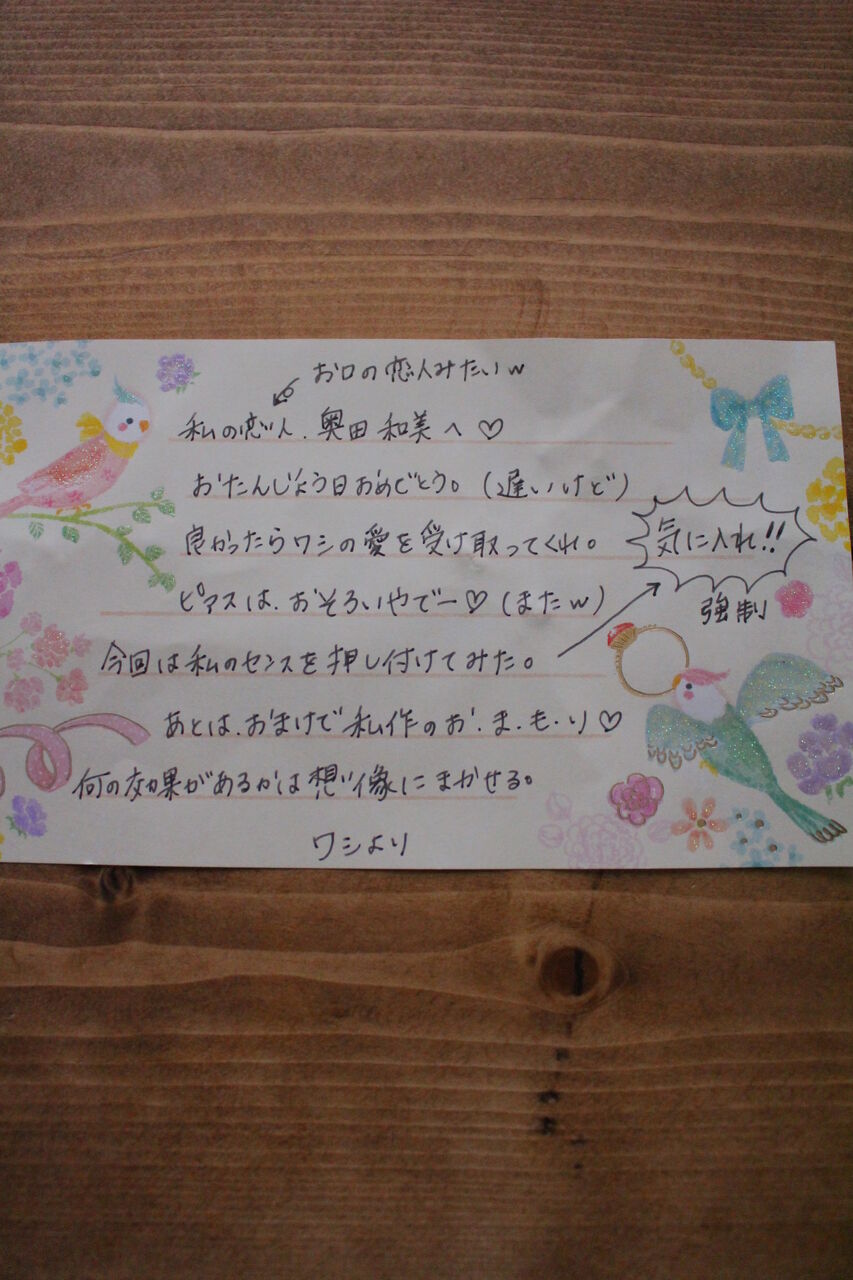 お口の恋人みたいw
私の恋人、奥田和美へ♡
おたんじょう日おめでとう。(遅いけど)
良かったらワシの愛を受け取ってくれ。
気に入れ!!
ピアスは、おそろいやでー♡(またw)
強制
今回は私のセンスを押し付けてみた。
あとは、おまけで私作のお・ま・も・り♡
何の効果があるかは想像にまかせる。
ワシより